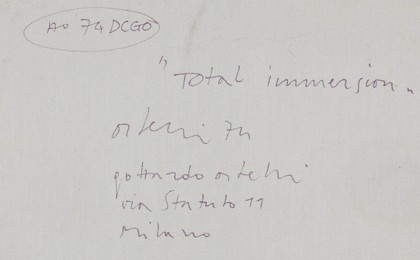 AO 74 DCGO
"Total immersion"
ortelli 74
gottardo ortelli
via Statuto 11
Milano